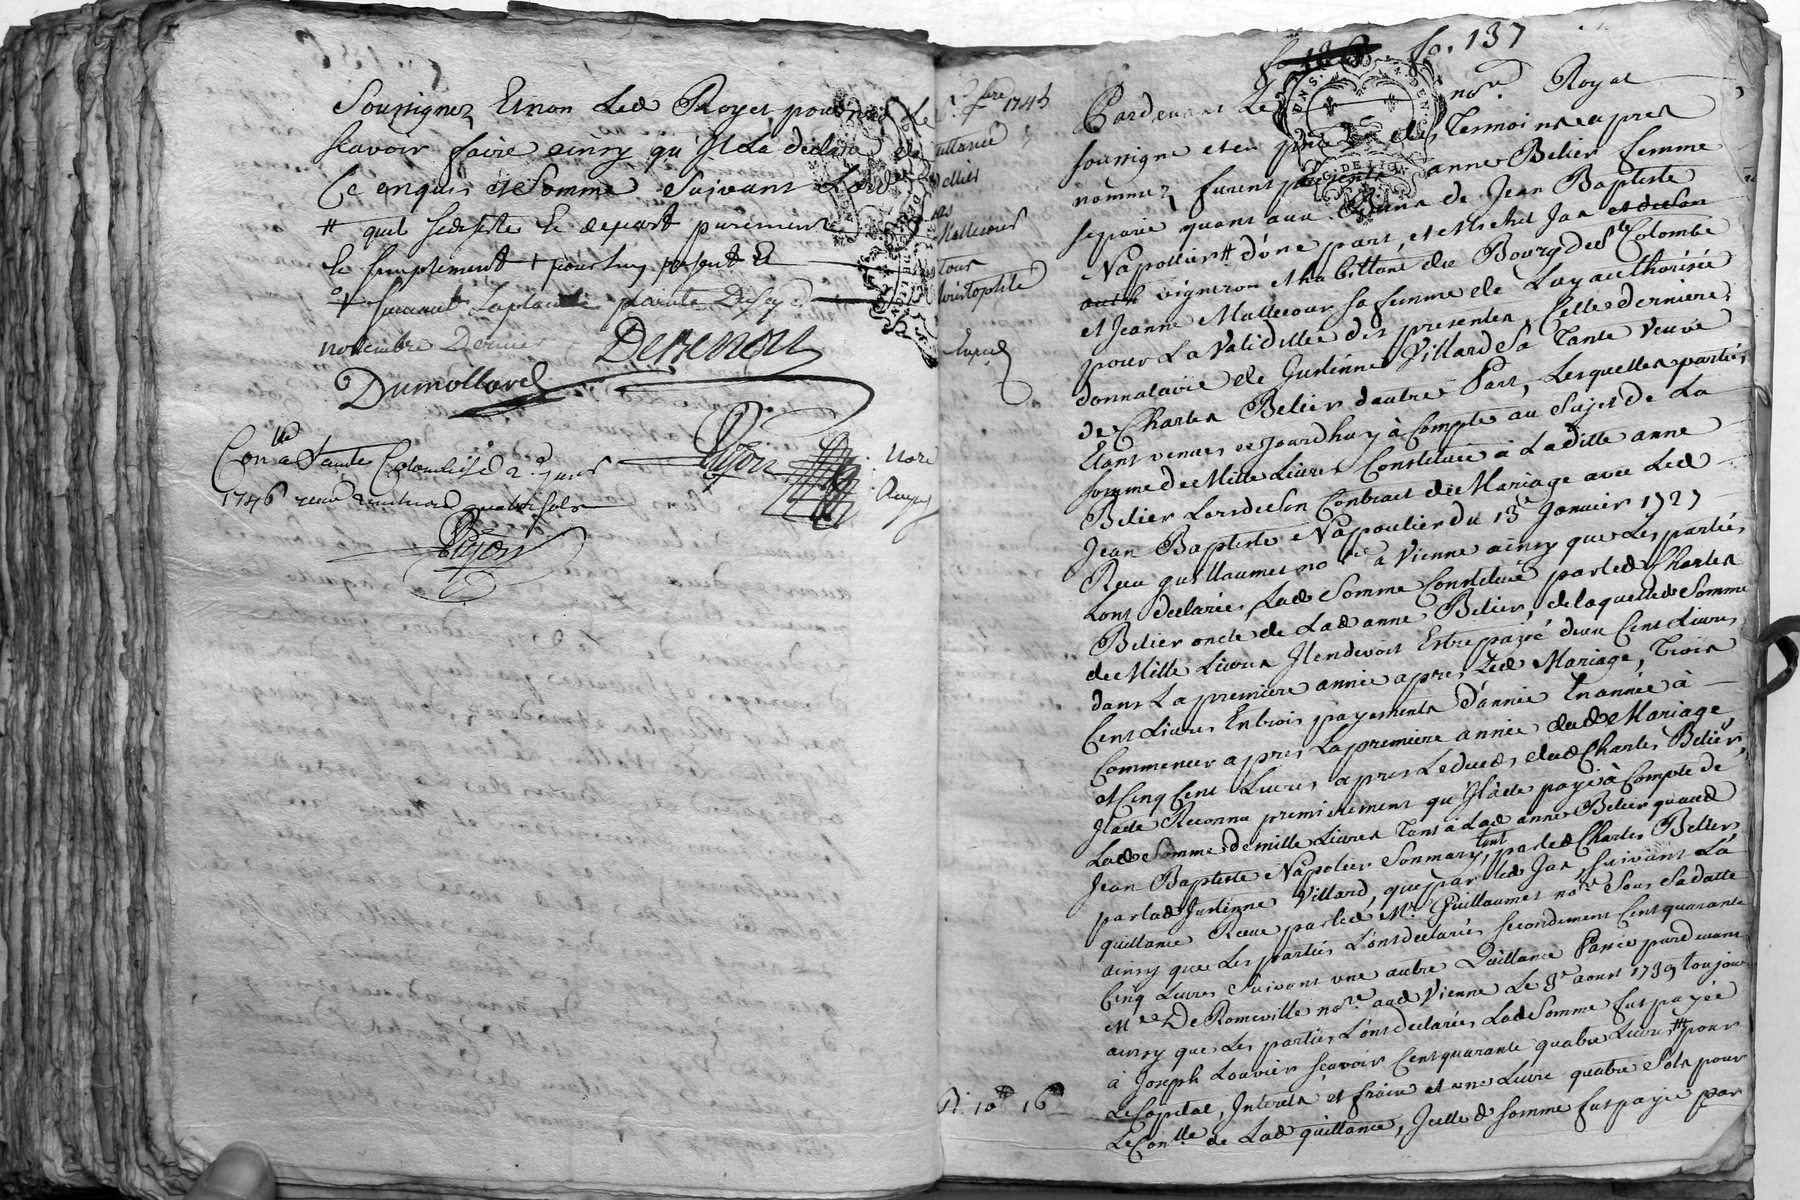 Soussignez Et non Led Royet pour ne le
scavoir faire ainsy qu'Il la déclaré de
Ce enquis et Somme Suivant Lord
# quil sedesiste et depart purement
et simplement + pour luy present et
Suivant la plainte du
novembre Dernier
Deksenon
Dumollard
Conllé a Sainte Colombe le 2e janv
1746 reçu quatre sols
Dujon
nore
Royal
Dujon
fo. 137
1745
quittance
Bellier
Mallecour
tous
Christophle
Exped
Pardevant Le nore Royal
soussigné et en pnce des Termoins apres
nommez furent presents anne Belier femme
separée quant aux Biens de Jean Baptiste
Napollier # d'une part, et Michel Jas
vigneron et habittant du Bourg de Ste Colombe
et Jeanne Mallecour sa femme de Luy authorisée
pour La Validitée des presentes, Celle derniere
donnataire de Justinne Villard Sa Tante Veuve
de Charles Belier dautre Part, Lesquelles parties
Etant venues cejourdhuy à Compte au Sujet de La
somme de Mille Livres Constituée à Laditte anne
Belier Lors de Son Contract de Mariage avec Led
Jean Baptiste Nappoulier du 13e Janvier 1727
Reçu guillaumet nore à Vienne ainsy que Les parties
Lont declarées, Lad Somme Constituée par led Charles
Belier oncle de Lad anne Belier, de laquelle Somme
de Mille Livres Il en devoit Estre payé deux Cent Livres
dans La premiere année apres Led Mariage, Trois
Cent Livres En trois payements d'année En année à
Commencer apres La premiere année dud Mariage
et Cinq Cent Livres apres Le deceds dud Charles Belier,
Il a été Reconnu premierement qu'Il à été payé à Compte de
Lad Somme de mille Livres Tant à Lad anne Belier quaud
Jean Baptiste Napolier Son mary, tant par led Charles Belier,
par lad Justinne Villard, que par led Jas, suivant La
quittance Reçue par led Mr Guillaumet nore Sous Sa datte
ainsy que Les parties L'ont declarées, secondement Cent quarante
Cinq Livres Suivant une autre Quittance Passée pardevant
Me De Romeville nore aud Vienne Le 3e aoust 1739 toujour
ainsy que Les parties L'ont declarées, Lad Somme fut payée
à Joseph Louvier sçavoir Cent quarante quatre Livres # pour
Le Capital, Interets et fraix et une Livre quatre Sols pour
Le Conlle de Lad quittance, Icelle d somme fut payée par